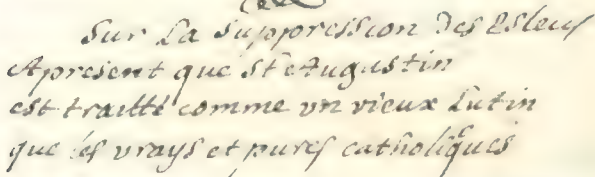 Sur La Suppression Des Esleus
Apresent que St Augustin
est traitté comme un vieux Lutin
que les vrays et pures catholiques